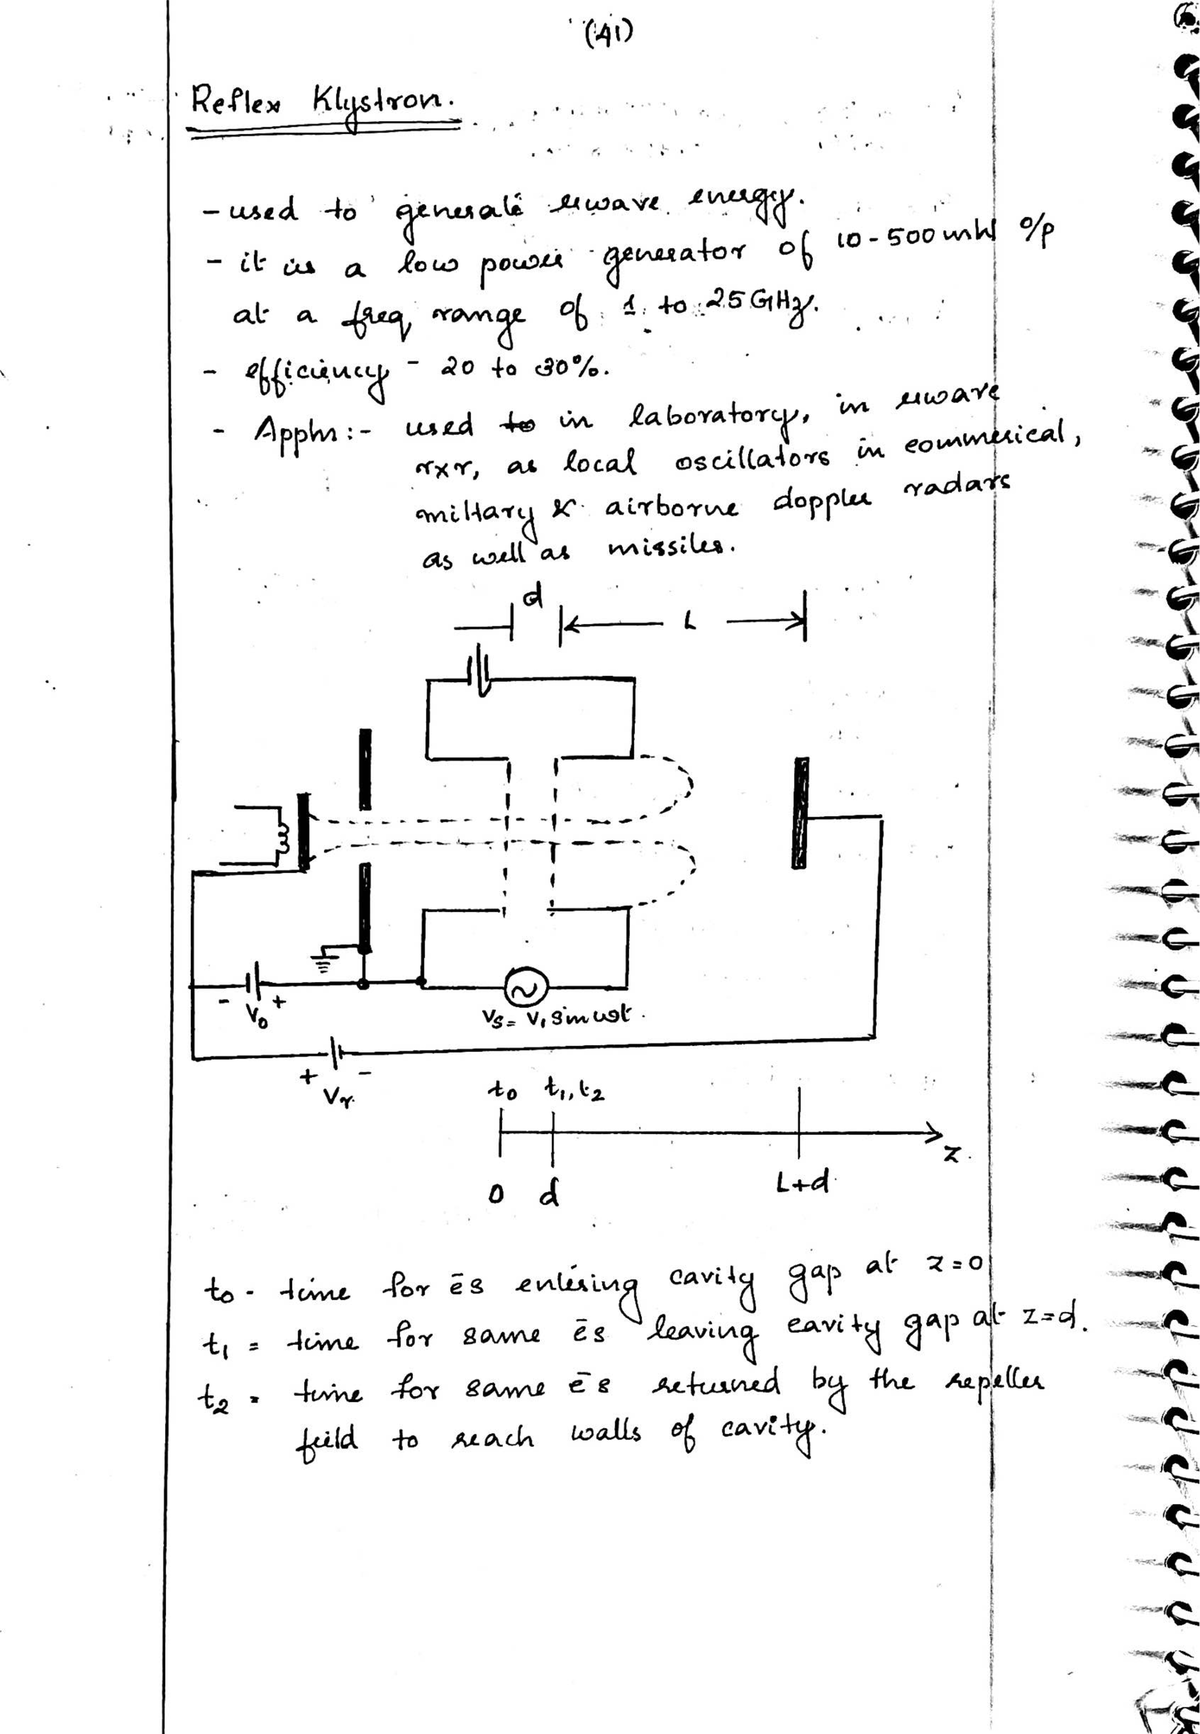 (41)
Reflex Klystron.
- used to generate μwave energy.
- it is a low power generator of 10-500 mW o/p
at a freq range of 1 to 25 GHz.
- efficiency - 20 to 30%.
- Applns :- used to in laboratory, in μwave
rxr, as local oscillators in commerical,
miltary & airborne doppler radars
as well as missiles.
d
L
- V0 +
Vs = V1 sin wt.
+ Vr. -
t0 t1, t2
z.
0 d L+d
t0 - time for ēs entering cavity gap at z=0
t1 = time for same ēs leaving cavity gap at z=d.
t2 = time for same ēs returned by the repeller
field to reach walls of cavity.